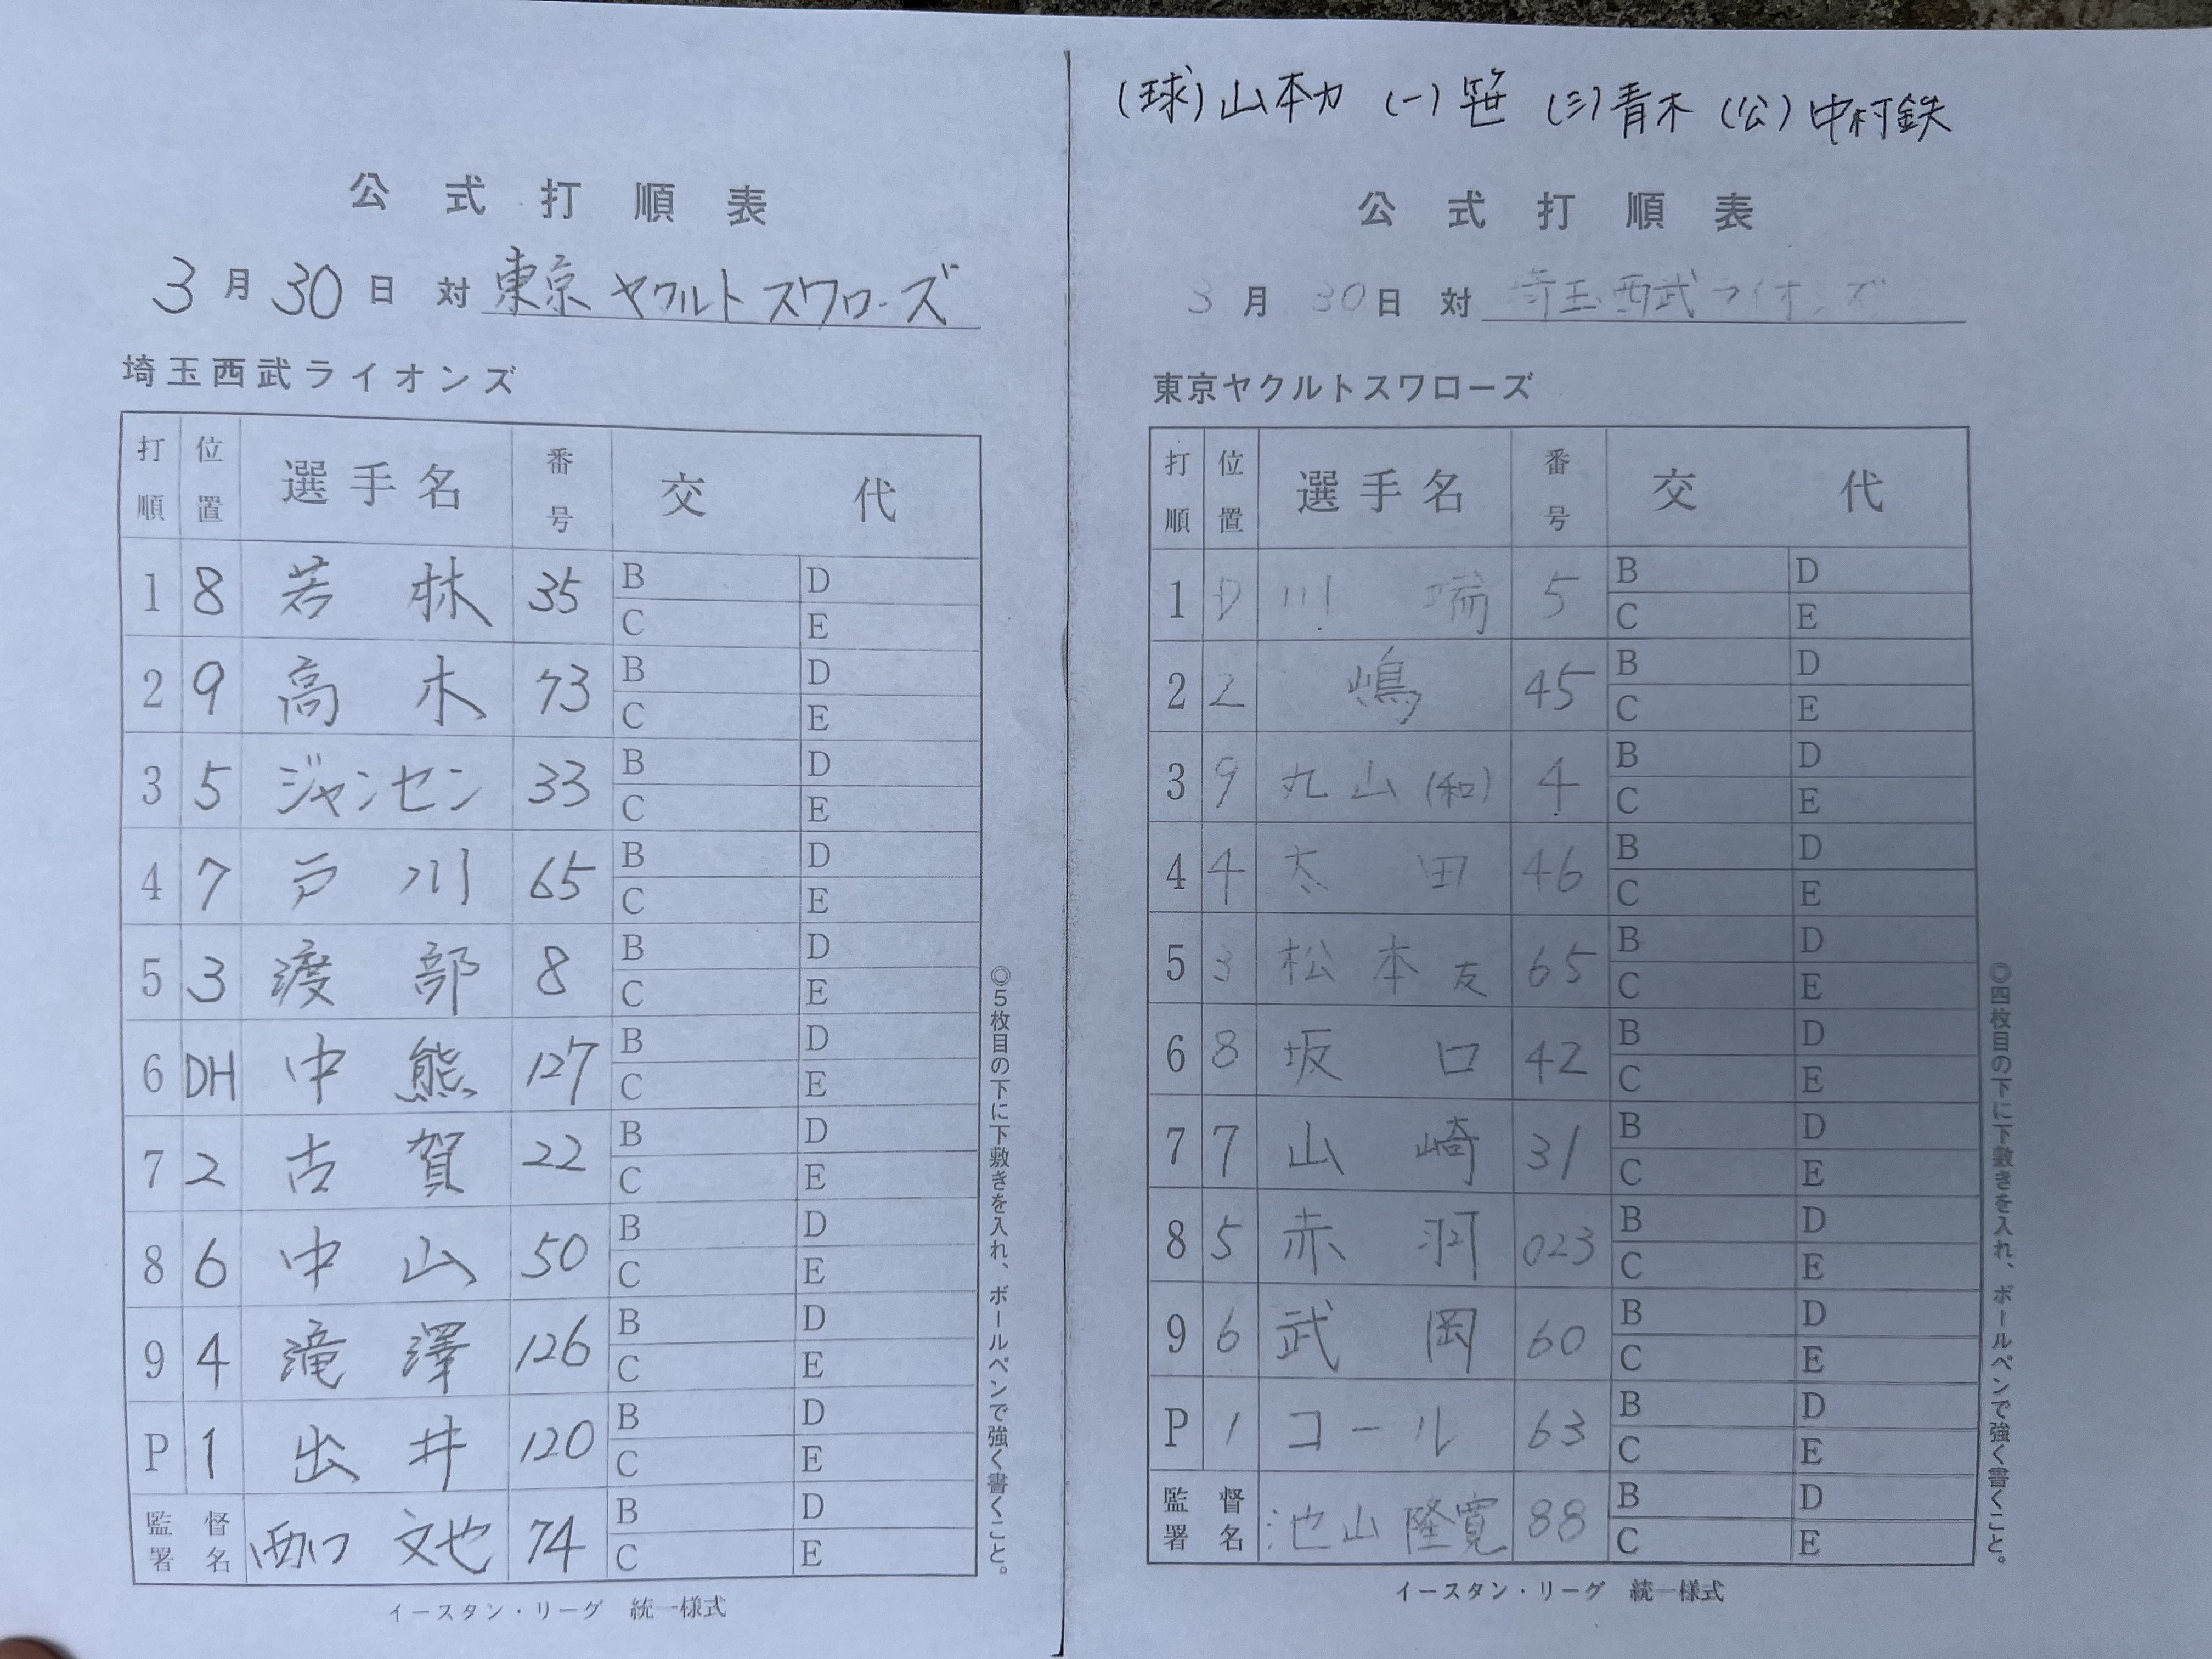 (球)山本力 (一)笹 (三)青木 (公)中村鉄
公式打順表
3月30日 対 東京ヤクルトスワローズ
埼玉西武ライオンズ
打順 位置 選手名 番号 交代
1 8 若林 35 B C D E
2 9 高木 73 B C D E
3 5 ジャンセン 33 B C D E
4 7 戸川 65 B C D E
5 3 渡部 8 B C D E
6 DH 中熊 127 B C D E
7 2 古賀 22 B C D E
8 6 中山 50 B C D E
9 4 滝澤 126 B C D E
P 1 出井 120 B C D E
監督署名 西口文也 74 B C D E
◎5枚目の下に下敷きを入れ、ボールペンで強く書くこと。
イースタン・リーグ 統一様式
公式打順表
3月30日 対 埼玉西武ライオンズ
東京ヤクルトスワローズ
打順 位置 選手名 番号 交代
1 D 川端 5 B C D E
2 2 嶋 45 B C D E
3 9 丸山(和) 4 B C D E
4 4 太田 46 B C D E
5 3 松本友 65 B C D E
6 8 坂口 42 B C D E
7 7 山崎 31 B C D E
8 5 赤羽 023 B C D E
9 6 武岡 60 B C D E
P 1 コール 63 B C D E
監督署名 池山隆寛 88 B C D E
◎四枚目の下に下敷きを入れ、ボールペンで強く書くこと。
イースタン・リーグ 統一様式